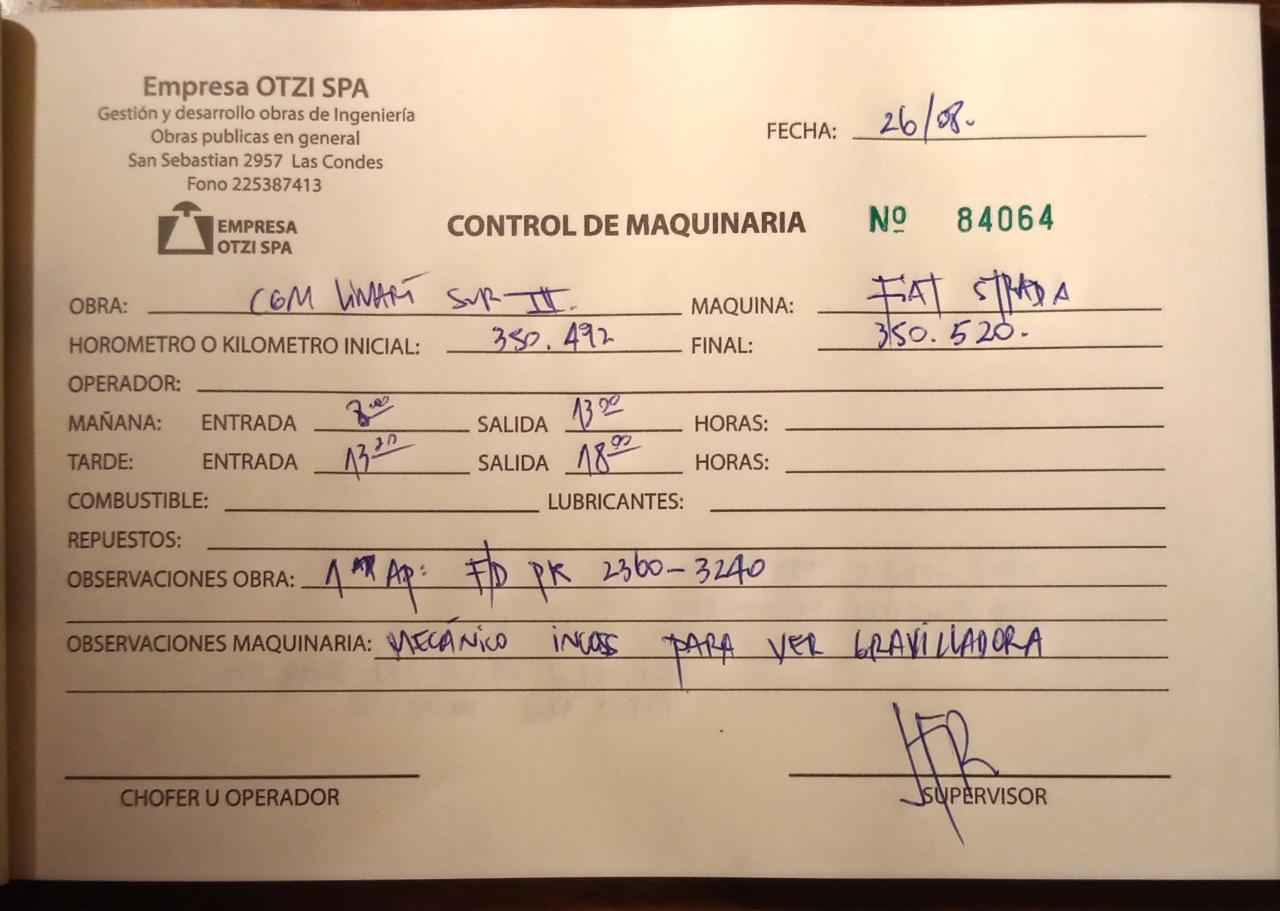 Empresa OTZI SPA
Gestión y desarrollo obras de Ingeniería
Obras publicas en general
San Sebastian 2957 Las Condes
Fono 225387413
FECHA: 26/08.
EMPRESA
OTZI SPA
CONTROL DE MAQUINARIA Nº 84064
OBRA: CGM LINARES SUR II. MAQUINA: FIAT STRADA
HOROMETRO O KILOMETRO INICIAL: 350.492 FINAL: 350.520.
OPERADOR:
MAÑANA: ENTRADA 8:00 SALIDA 13:00 HORAS:
TARDE: ENTRADA 13:30 SALIDA 18:00 HORAS:
COMBUSTIBLE: LUBRICANTES:
REPUESTOS:
OBSERVACIONES OBRA: 1ª AP: F/D PK 2360-3240
OBSERVACIONES MAQUINARIA: MECÁNICO PARA VER GRAVILLADORA
CHOFER U OPERADOR SUPERVISOR